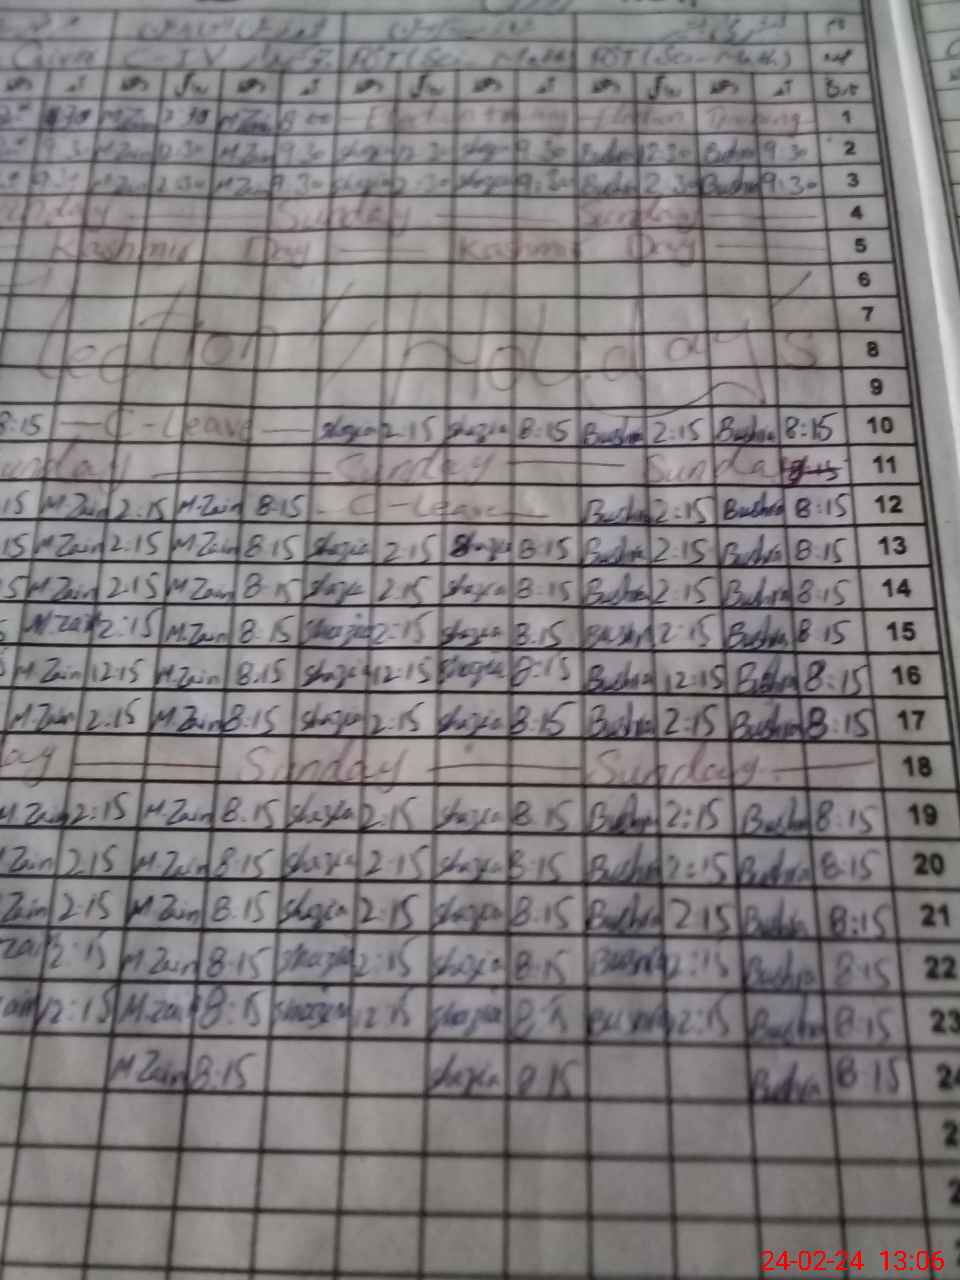 C-IV PST (Sci-Math) PST (Sci-Math)
M.Zain 2:30 M.Zain 8:00 Election Training Election Training 1
9:30 M.Zain 2:30 M.Zain 9:30 Shazia 2:30 Shazia 9:30 Bushra 12:30 Bushra 9:30 2
9:30 M.Zain 2:30 M.Zain 9:30 Shazia 2:30 Shazia 9:30 Bushra 2:30 Bushra 9:30 3
unday Sunday Sunday 4
Kashmir Day Kashmir Day 5
6
7
lection / Holidays 8
9
8:15 C-Leave Shazia 2:15 Shazia 8:15 Bushra 2:15 Bushra 8:15 10
unday Sunday Sunda 11
15 M.Zain 2:15 M.Zain 8:15 C-Leave Bushra 2:15 Bushra 8:15 12
15 M.Zain 2:15 M.Zain 8:15 Shazia 2:15 Shazia 8:15 Bushra 2:15 Bushra 8:15 13
5 M.Zain 2:15 M.Zain 8:15 Shazia 2:15 Shazia 8:15 Bushra 2:15 Bushra 8:15 14
M.Zain 2:15 M.Zain 8:15 Shazia 2:15 Shazia 8:15 Bushra 2:15 Bushra 8:15 15
M.Zain 12:15 M.Zain 8:15 Shazia 12:15 Shazia 8:15 Bushra 12:15 Bushra 8:15 16
M.Zain 2:15 M.Zain 8:15 Shazia 2:15 Shazia 8:15 Bushra 2:15 Bushra 8:15 17
ay Sunday Sunday 18
M.Zain 2:15 M.Zain 8:15 Shazia 2:15 Shazia 8:15 Bushra 2:15 Bushra 8:15 19
Zain 2:15 M.Zain 8:15 Shazia 2:15 Shazia 8:15 Bushra 2:15 Bushra 8:15 20
Zain 2:15 M.Zain 8:15 Shazia 2:15 Shazia 8:15 Bushra 2:15 Bushra 8:15 21
Zain 2:15 M.Zain 8:15 Shazia 2:15 Shazia 8:15 Bushra 2:15 Bushra 8:15 22
ain 12:15 M.Zain 8:15 Shazia 12:15 Shazia 8:15 Bushra 2:15 Bushra 8:15 23
M.Zain 8:15 Shazia 8:15 Bushra 8:15 24
2
2
24-02-24 13:06